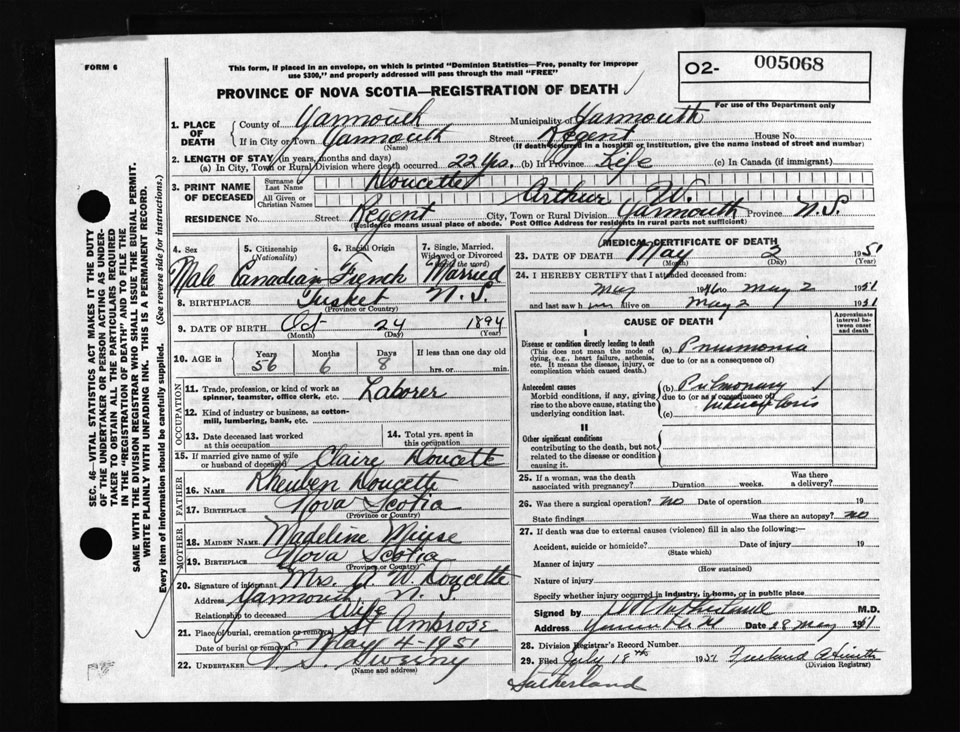 FORM 6
This form, if placed in an envelope, on which is printed "Dominion Statistics—Free, penalty for improper
use $300," and properly addressed will pass through the mail "FREE"
O2- 005068
PROVINCE OF NOVA SCOTIA—REGISTRATION OF DEATH
For use of the Department only
1. PLACE OF DEATH
County of Yarmouth Municipality of Yarmouth
If in City or Town Yarmouth Street Regent House No.
(Name) (If death occurred in a hospital or institution, give the name instead of street and number)
2. LENGTH OF STAY (in years, months and days)
(a) In City, Town or Rural Division where death occurred 22 Yrs. (b) In Province Life (c) In Canada (if immigrant)
3. PRINT NAME OF DECEASED
Surname or Last Name Doucette
All Given or Christian Names Arthur W.
RESIDENCE No. Street Regent City, Town or Rural Division Yarmouth Province N.S.
(Residence means usual place of abode. Post Office Address for residents in rural parts not sufficient)
4. Sex Male
5. Citizenship (Nationality) Canadian
6. Racial Origin French
7. Single, Married, Widowed or Divorced (Write the word) Married
8. BIRTHPLACE Tusket N.S.
(Province or Country)
9. DATE OF BIRTH Oct 24 1894
(Month) (Day) (Year)
10. AGE in Years 56 Months 6 Days 8 If less than one day old
hrs. or min.
OCCUPATION
11. Trade, profession, or kind of work as
spinner, teamster, office clerk, etc. Laborer
12. Kind of industry or business, as cotton-
mill, lumbering, bank, etc.
13. Date deceased last worked
at this occupation
14. Total yrs. spent in
this occupation
15. If married give name of wife
or husband of deceased Claire Doucette
FATHER
16. NAME Rheuben Doucette
17. BIRTHPLACE Nova Scotia
(Province or Country)
MOTHER
18. MAIDEN NAME Madeline Muise
19. BIRTHPLACE Nova Scotia
(Province or Country)
20. Signature of informant Mrs. A W. Doucette
Address Yarmouth, N.S.
Relationship to deceased Wife
21. Place of burial, cremation or removal St Ambrose
Date of burial or removal May 4 1951
22. UNDERTAKER V.S. Sweeny
(Name and address)
MEDICAL CERTIFICATE OF DEATH
23. DATE OF DEATH May 2 1951
(Month) (Day) (Year)
24. I HEREBY CERTIFY that I attended deceased from
to May 2 1951
and last saw h im alive on May 2 1951
CAUSE OF DEATH
Approximate interval between onset and death
I
Disease or condition directly leading to death
(This does not mean the mode of
dying, e.g., heart failure, asthenia,
etc. It means the disease, injury, or
complication which caused death.)
(a) Pneumonia
due to (or as a consequence of)
Antecedent causes
Morbid conditions, if any, giving
rise to the above cause, stating the
underlying condition last.
(b) Pulmonary
due to (or as a consequence of)
(c)
II
Other significant conditions
contributing to the death, but not
related to the disease or condition
causing it.
25. If a woman, was the death
associated with pregnancy? Duration weeks. Was there a delivery?
26. Was there a surgical operation? No Date of operation 19
State findings Was there an autopsy? no
27. If death was due to external causes (violence) fill in also the following:—
Accident, suicide or homicide? Date of injury 19
(State which)
Manner of injury
(How sustained)
Nature of injury
Specify whether injury occurred in industry, in home, or in public place
Signed by M.D.
Address Date 28 May 1951
28. Division Registrar's Record Number
29. Filed July 18th 1951
(Division Registrar)
Sutherland
SEC. 46—VITAL STATISTICS ACT MAKES IT THE DUTY
OF THE UNDERTAKER OR PERSON ACTING AS UNDER-
TAKER TO OBTAIN ALL THE PARTICULARS REQUIRED
IN THE "REGISTRATION OF DEATH" AND TO FILE THE
SAME WITH THE DIVISION REGISTRAR WHO SHALL ISSUE THE BURIAL PERMIT.
WRITE PLAINLY WITH UNFADING INK. THIS IS A PERMANENT RECORD.
Every item of information should be carefully supplied. (See reverse side for instructions.)